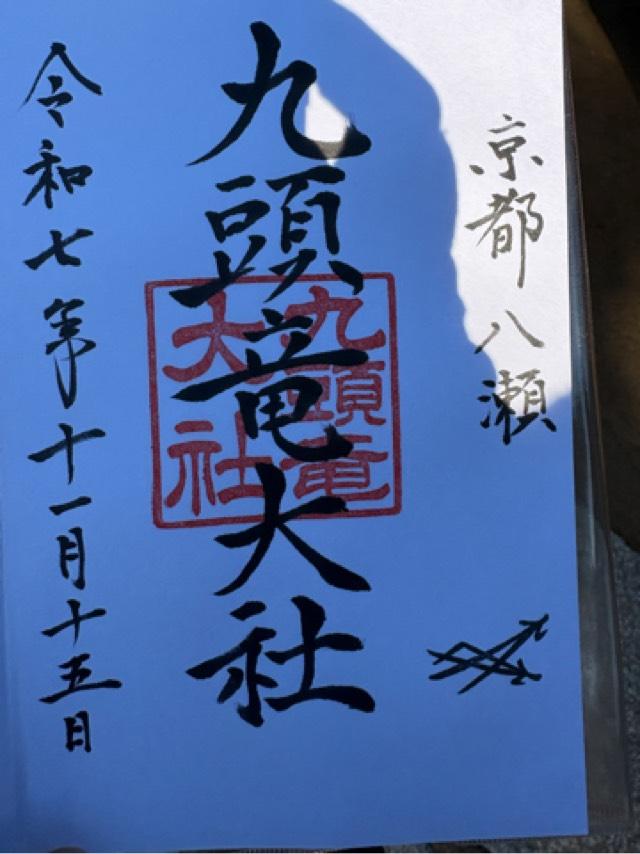 京都八瀬
九頭竜大社
九頭竜
大社
令和七年十一月十五日